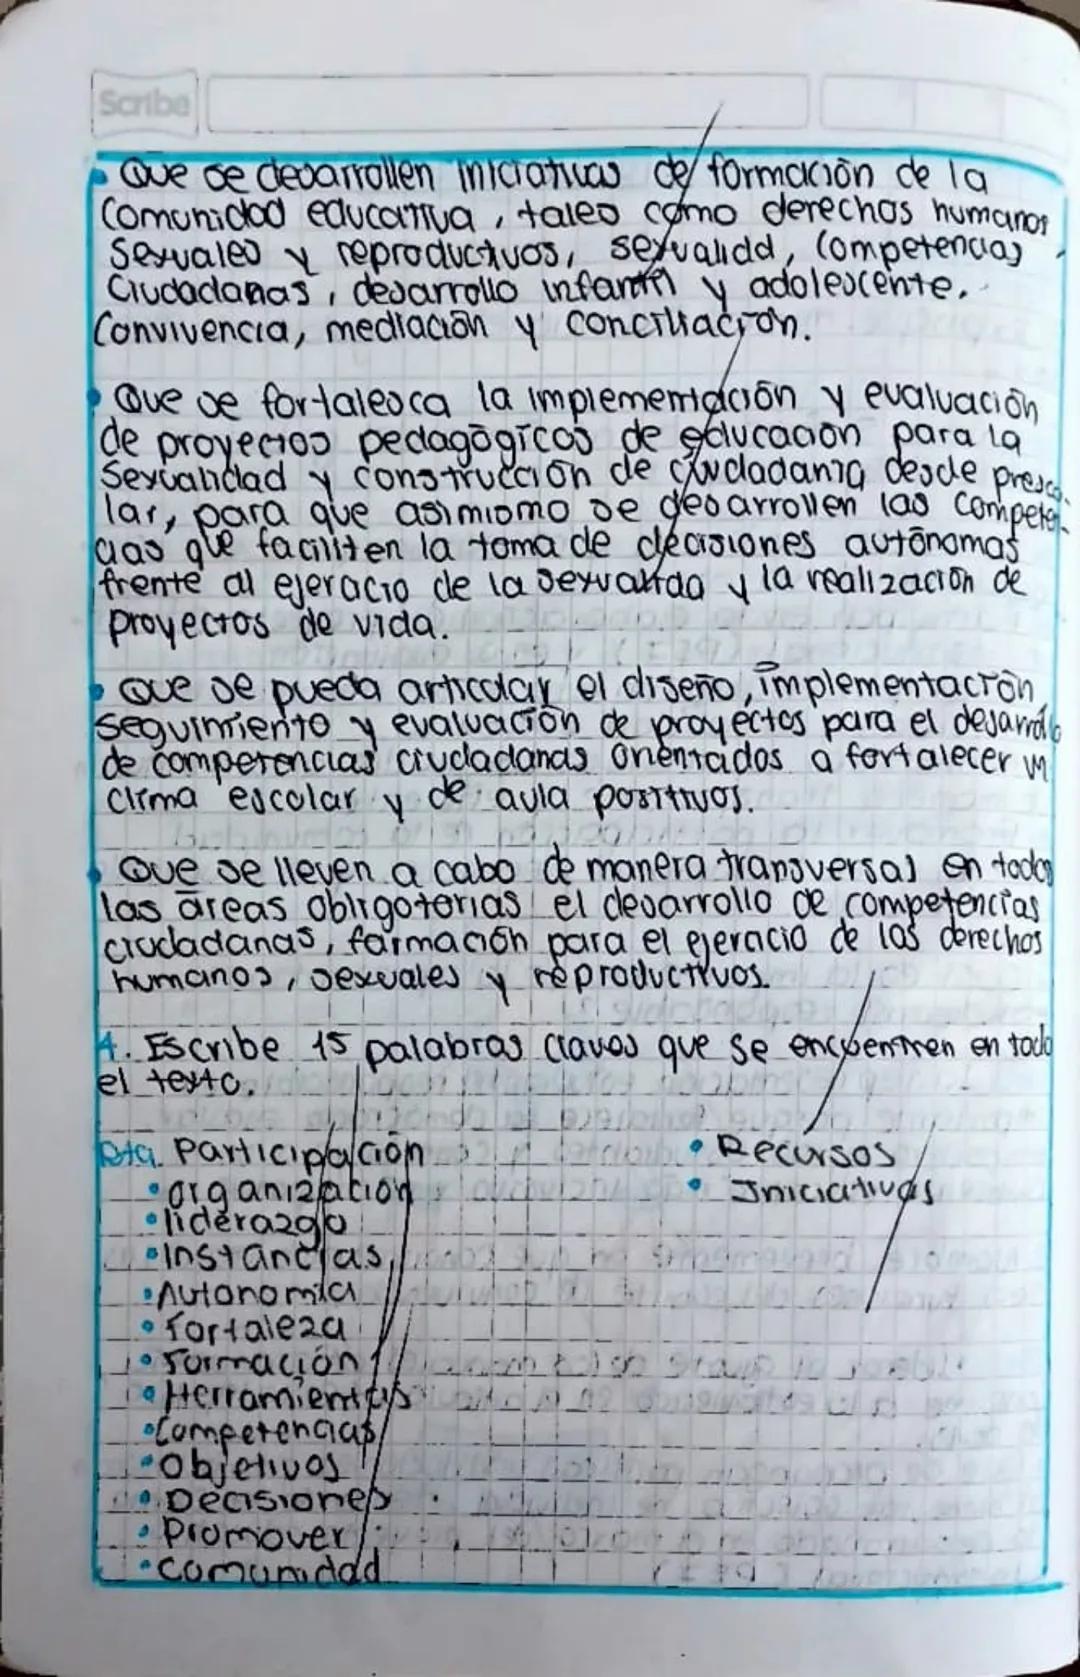 Scribe
• Que se desarrollen iniciativas de formación de la
Comunidad educativa, tales como derechos humanos
Sexuales y reproductivos, sexualidd, Competencias
Ciudadanas, desarrollo infantil y adolescente.
Convivencia, mediación y conciliación.
• Que se fortalesca la implementación y evaluación
de proyectos pedagógicos de educación para la
Sexualidad y construcción de ciudadanía desde presco-
lar, para que asimismo se desarrollen las Competen-
cias que faciliten la toma de decisiones autónomas
frente al ejercicio de la sexualida y la realización de
proyectos de vida.
• Que se pueda articular el diseño, implementación
seguimiento y evaluación de proyectos para el desarrollo
de competencias ciudadanas orientados a fortalecer un
clima escolar y de aula positivos.
• Que se lleven a cabo de manera transversal en todas
las áreas obligatorias el desarrollo de competencias
ciudadanas, formación para el ejercicio de los derechos
humanos, sexuales y reproductivos.
4. Escribe 15 palabras claves que se encuentren en todo
el texto.
Rta. Participación
• organización
• liderazgo
• Instancias
• Autonomía
• Fortaleza
• Formación
• Herramientas
• Competencias
• Objetivos
• Decisiones
• Promover
• comunidad
• Recursos
• Iniciativas